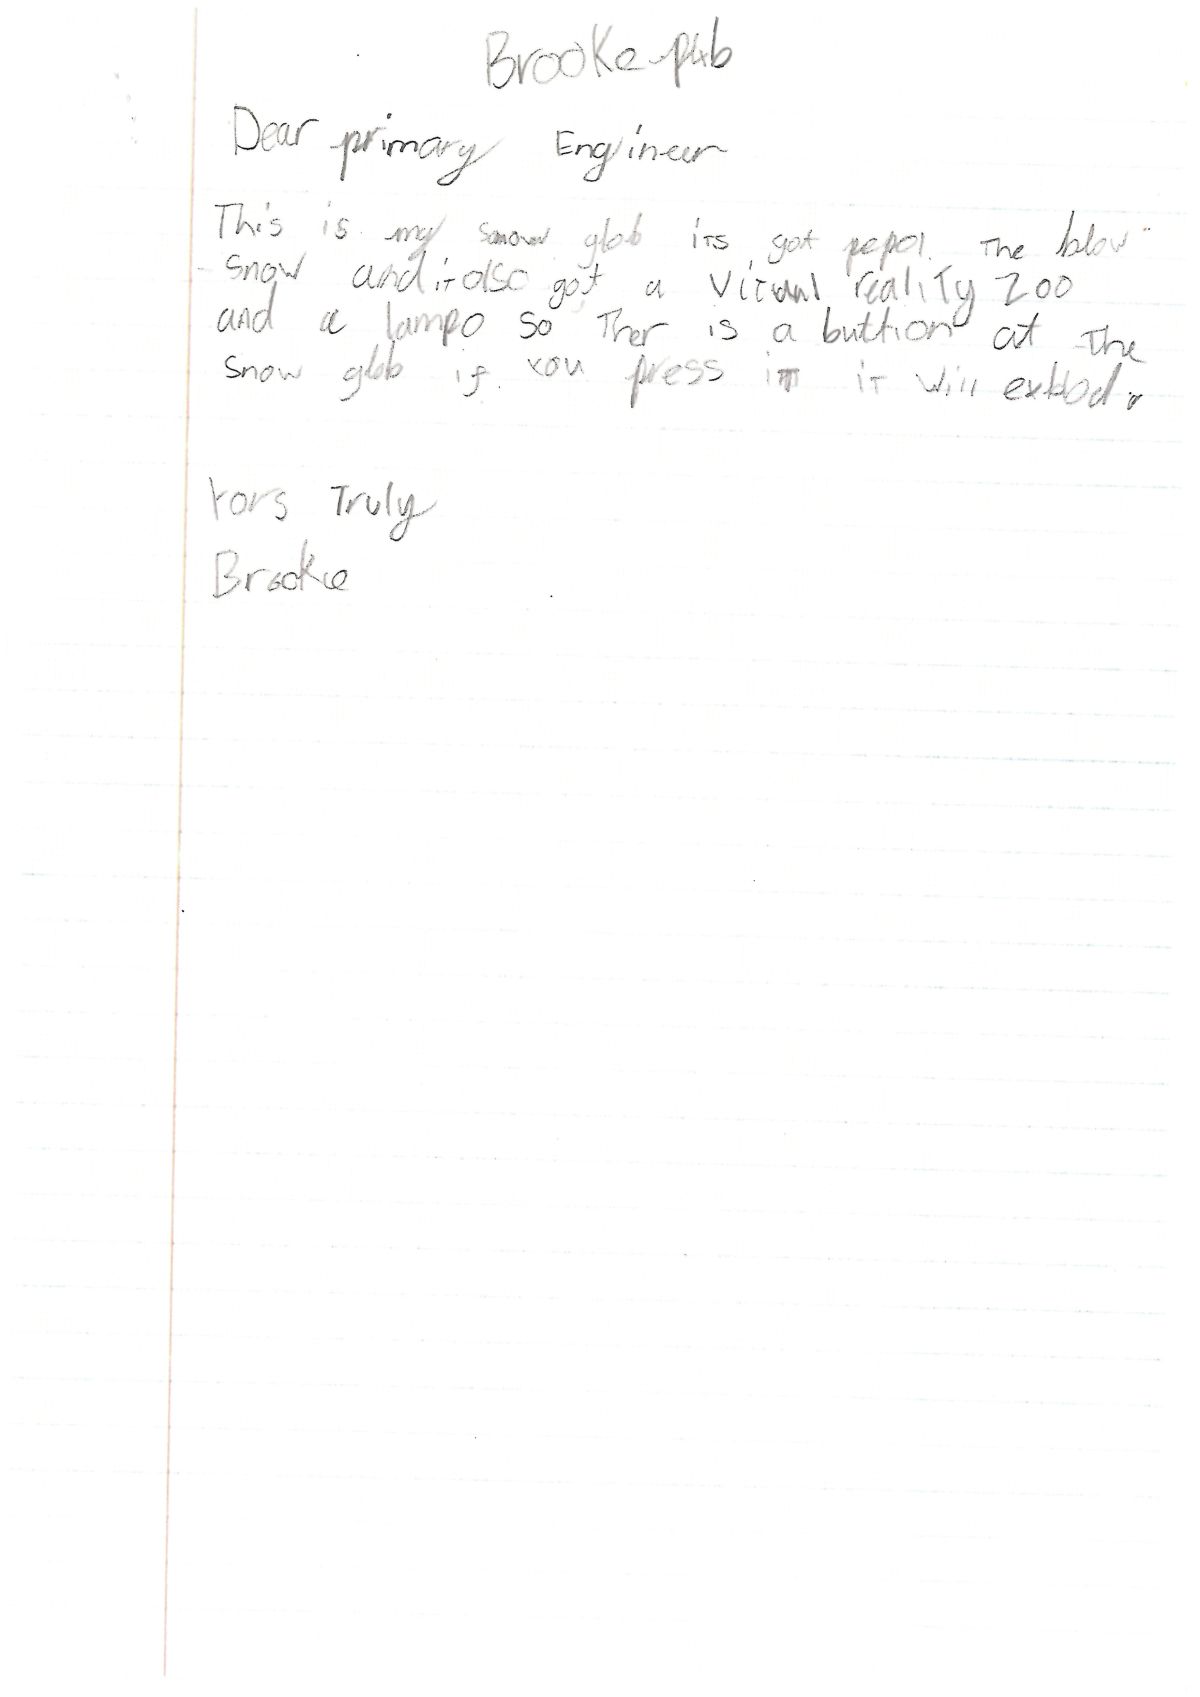 Brooke p4b
Dear primary Engineer
This is my snow glob its got pepol. The blow
snow and it also got a Virtual reality zoo
and a lampo so Ther is a buttion at The
snow glob if you press it it will exblod.
Yors Truly
Brooke